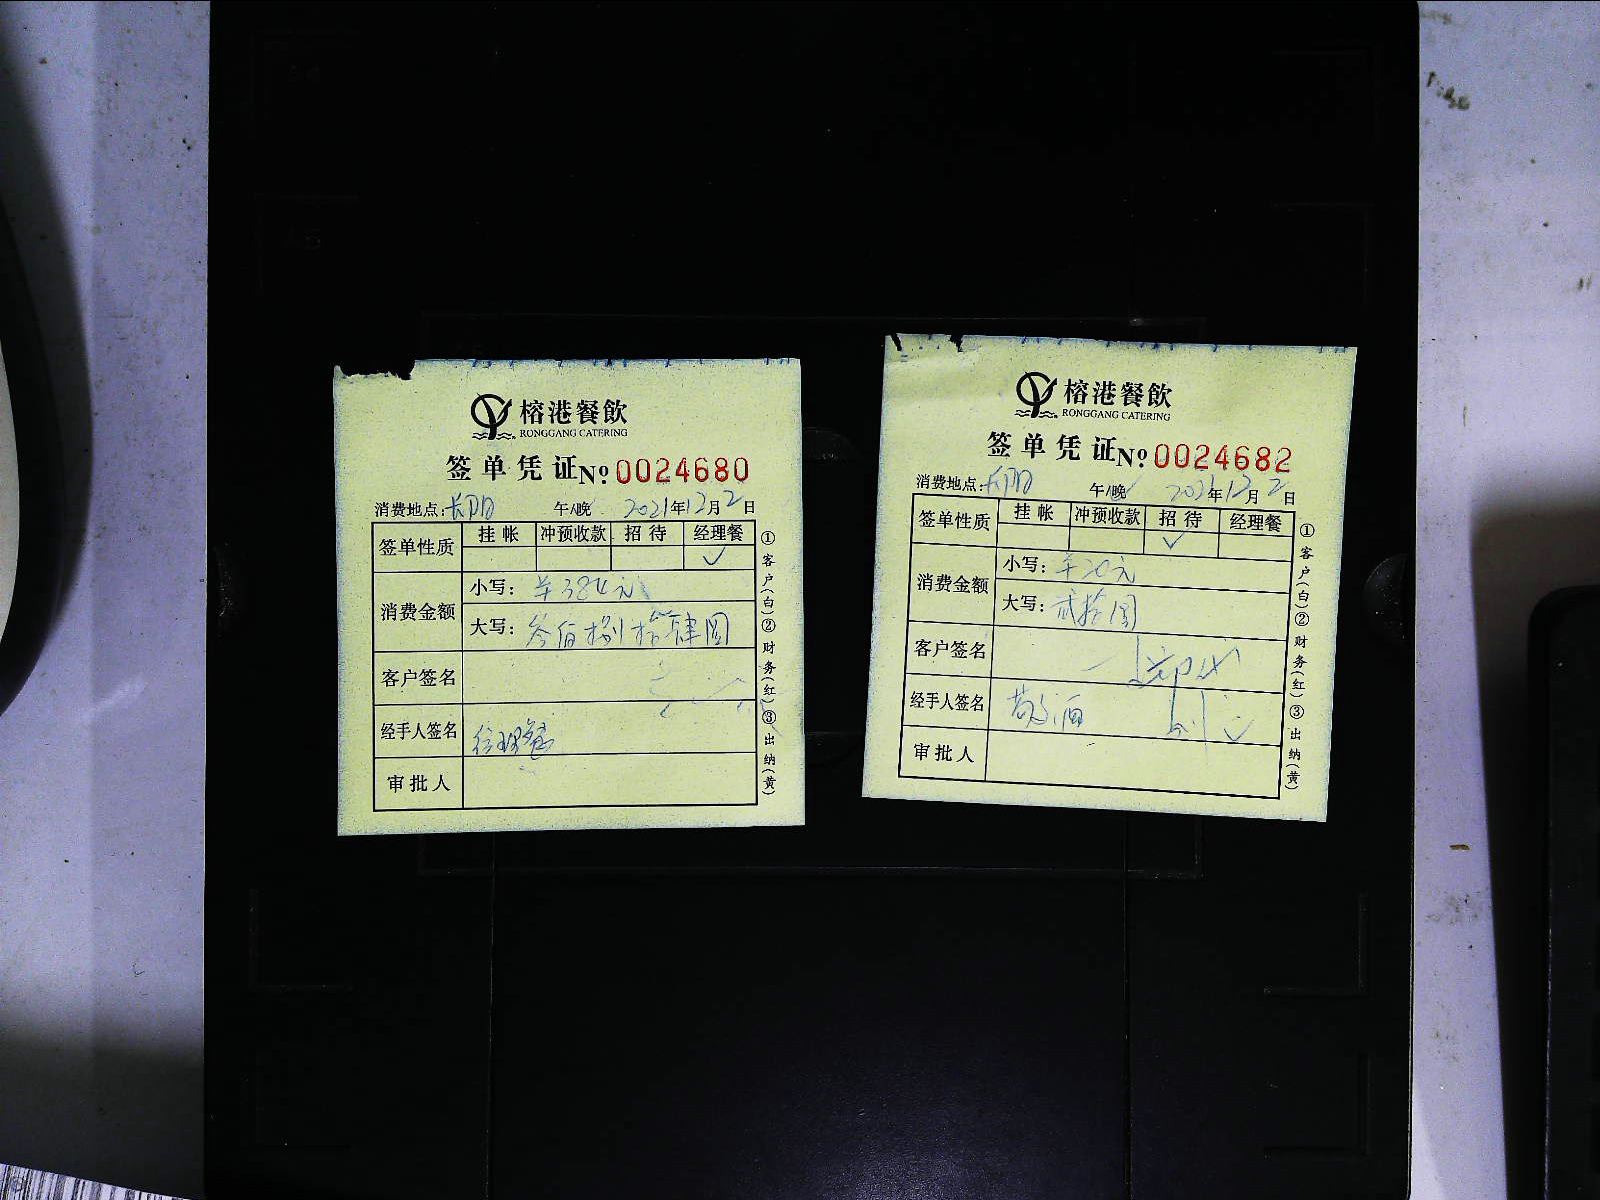 榕港餐飲
RONGGANG CATERING
签单凭证No 0024680
消费地点: 午/晚 2021年12月2日
签单性质 挂帐 冲预收款 招待 经理餐
✓
消费金额 小写: ¥384元
大写: 叁佰捌拾肆圆
客户签名
经手人签名
审批人
①客户(白)②财务(红)③出纳(黄)
榕港餐飲
RONGGANG CATERING
签单凭证No 0024682
消费地点: 午/晚 2021年12月2日
签单性质 挂帐 冲预收款 招待 经理餐
✓
消费金额 小写: ¥20元
大写: 贰拾圆
客户签名
经手人签名
审批人
①客户(白)②财务(红)③出纳(黄)